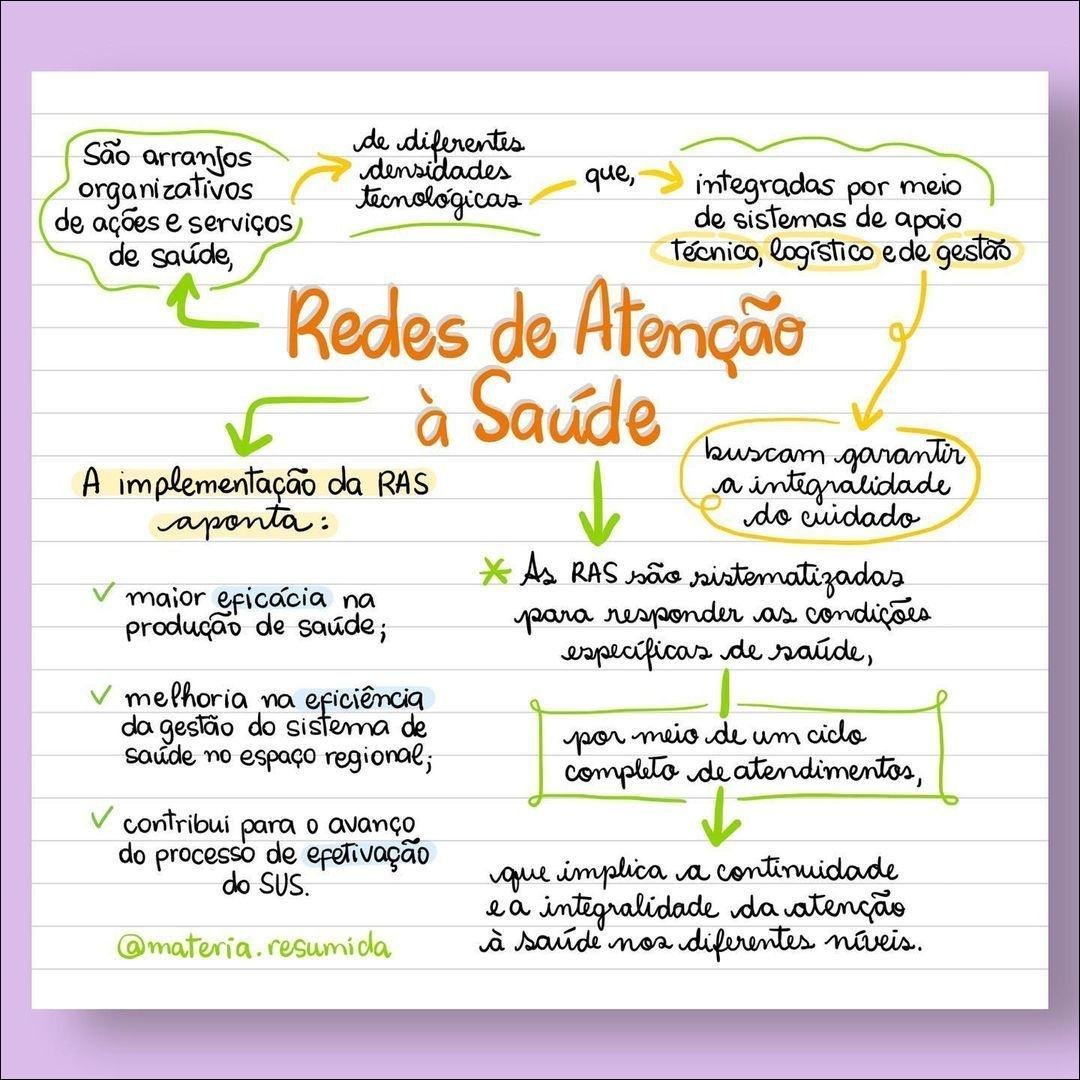 São arranjos
organizativos
de ações e serviços
de saúde,
de diferentes
densidades
tecnológicas
que,
integradas por meio
de sistemas de apoio
técnico, logístico e de gestão
buscam garantir
a integralidade
do cuidado
Redes de Atenção
à Saúde
A implementação da RAS
aponta:
✓ maior eficácia na
produção de saúde;
✓ melhoria na eficiência
da gestão do sistema de
saúde no espaço regional;
✓ contribui para o avanço
do processo de efetivação
do SUS.
* As RAS são sistematizadas
para responder as condições
específicas de saúde,
por meio de um ciclo
completo de atendimentos,
que implica a continuidade
e a integralidade da atenção
à saúde nos diferentes níveis.
@materia.resumida